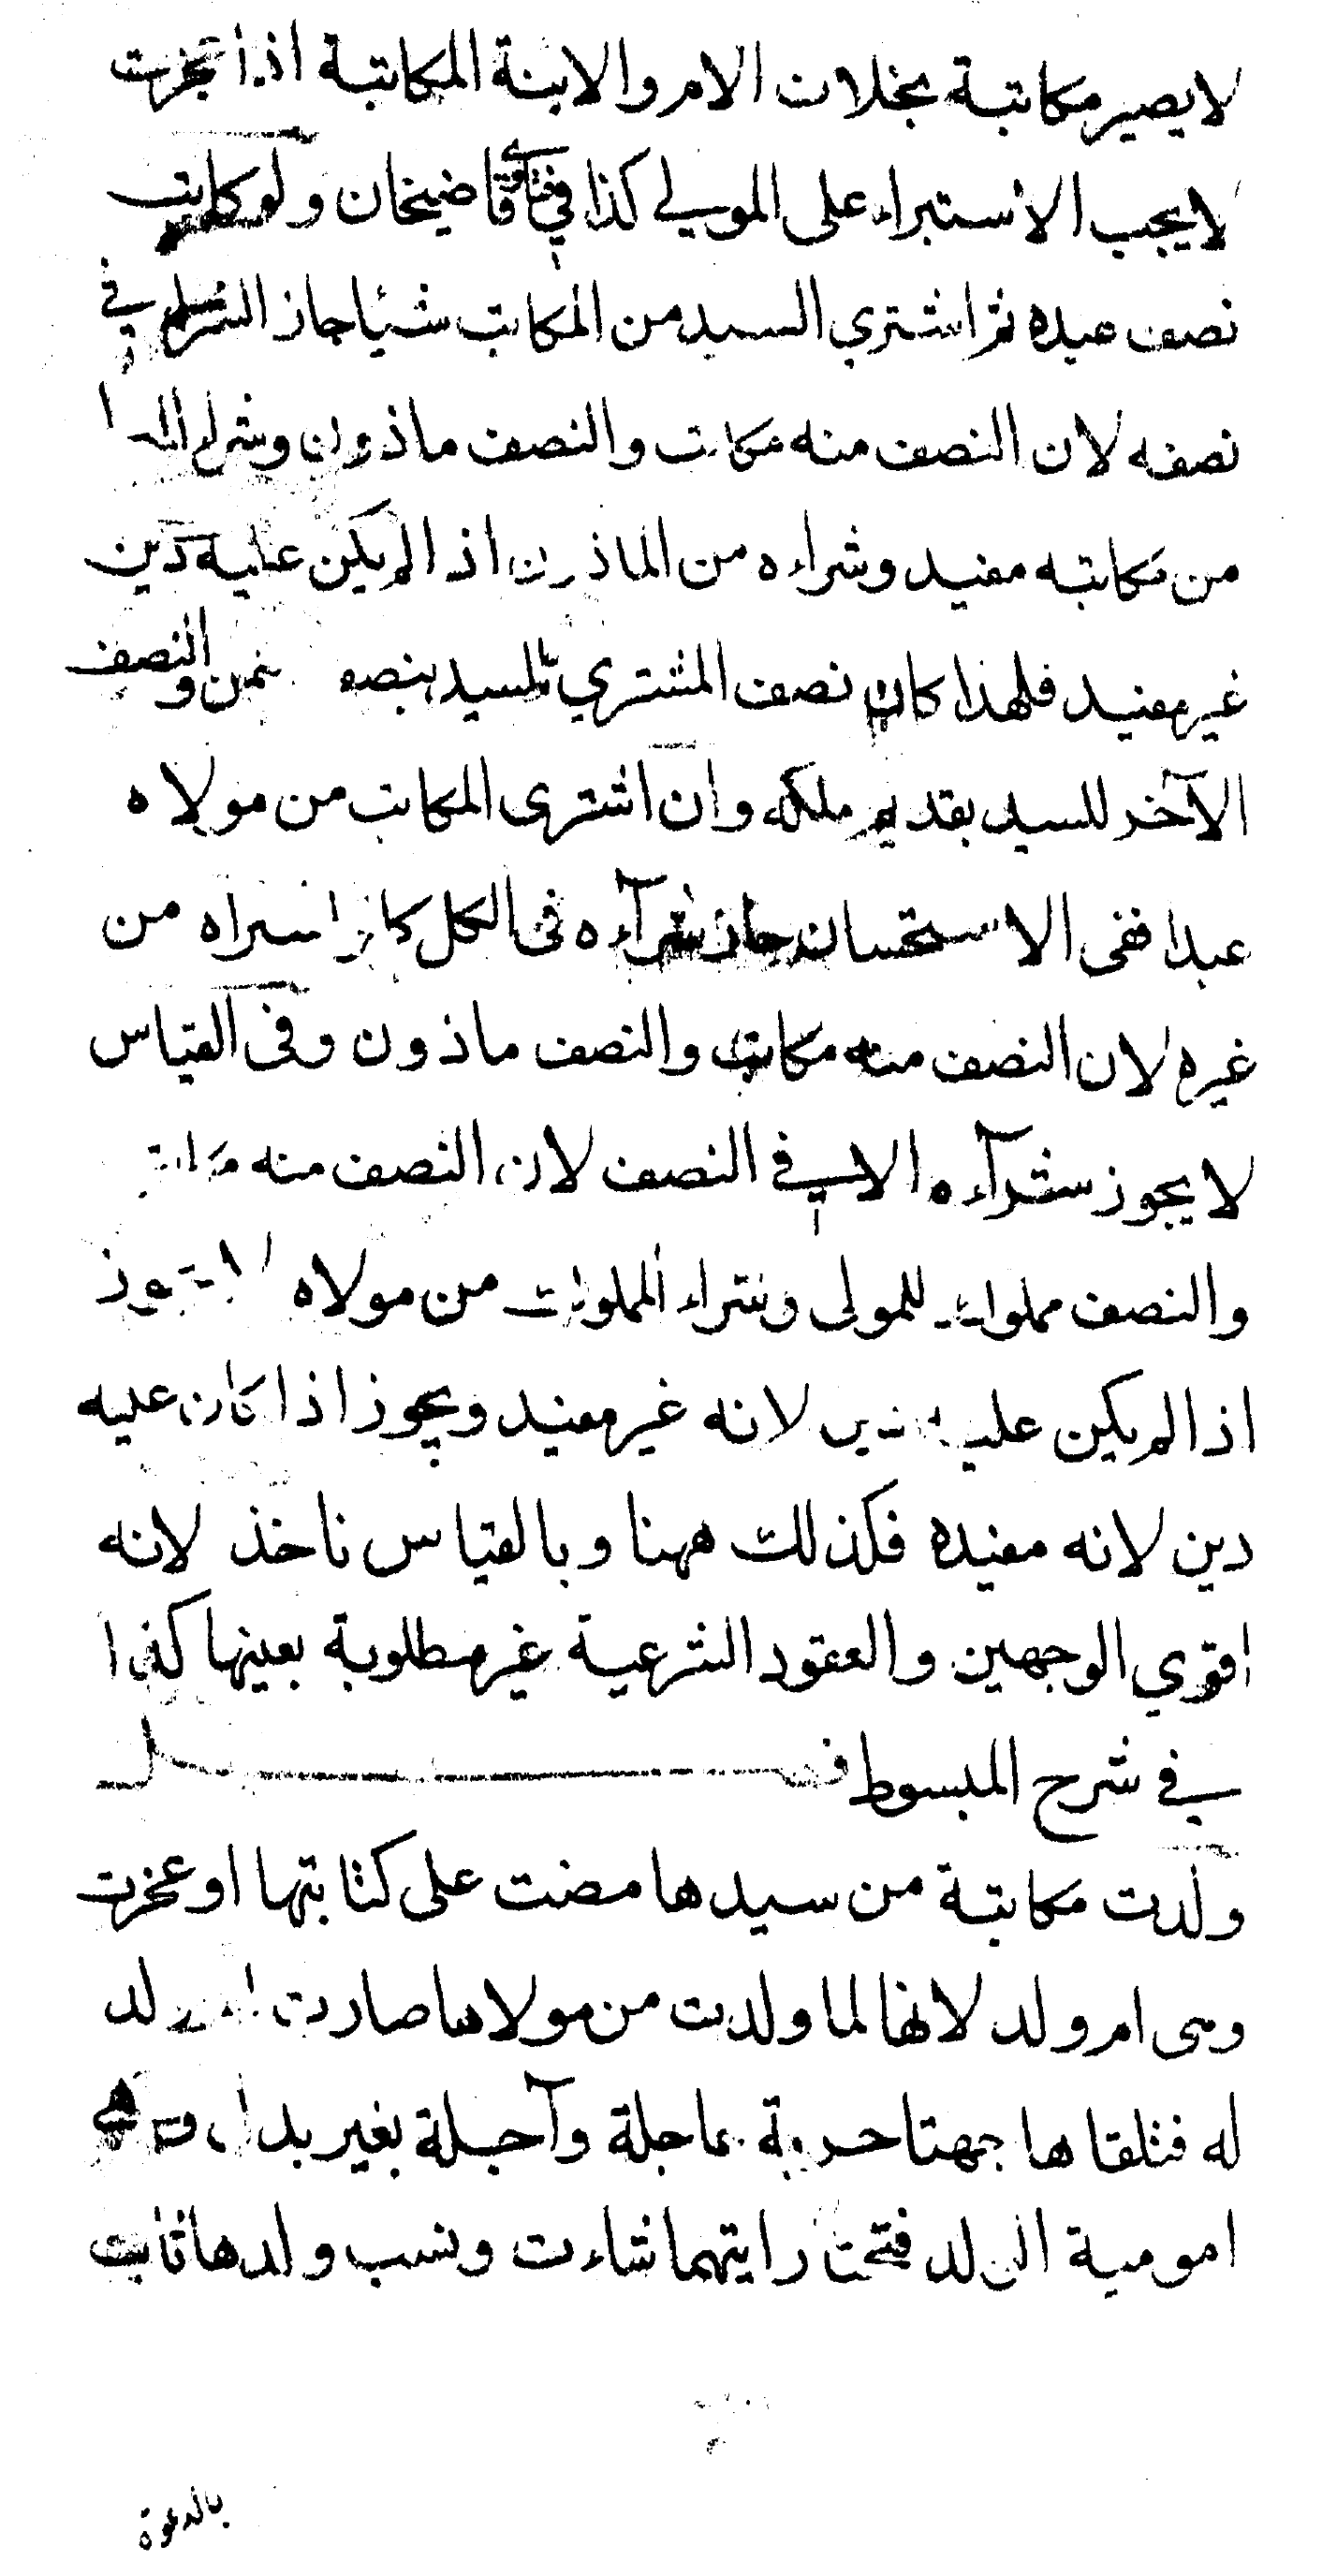 لا يصير مكاتبة بخلاف الام والابنة المكاتبة اذا عجزت
لا يجب الاستبراء على المولي كذا في فتاوي قاضيخان ولو كاتب
نصف عبده ثم اشتري السيد من المكاتب شيا جاز الشراء في
نصفه لان النصف منه مكاتب والنصف ماذون وشراء السيد
من مكاتبه مفيد وشراءه من الماذون اذا لم يكن عليه دين
غير مفيد فلهذا كان نصف المشتري للسيد بنصف الثمن والنصف
الآخر للسيد بقديم ملكه وان اشترى المكاتب من مولاه
عبدا ففى الاستحسان جاز شرآءه فى الكل كما لو اشتراه من
غيره لان النصف منه مكاتب والنصف ماذون وفى القياس
لا يجوز شرآءه الا في النصف لان النصف منه مكاتب
والنصف مملوك للمولى وشراء المملوك من مولاه لا يجوز
اذا لم يكن عليه دين لانه غير مفيد ويجوز اذا كان عليه
دين لانه مفيده فكذلك ههنا وبالقياس ناخذ لانه
اقوي الوجهين والعقود الشرعية غير مطلوبة بعينها كذا
في شرح المبسوط فصل
ولدت مكاتبة من سيدها مضت على كتابتها او عجزت
وهى ام ولد لانها لما ولدت من مولاها صارت ام ولد
له فتلقاها جهتا حرية عاجلة وآجلة بغير بدل وهي
امومية الولد فتختار ايتهما شاءت ونسب ولدها ثابت
بالدعوة